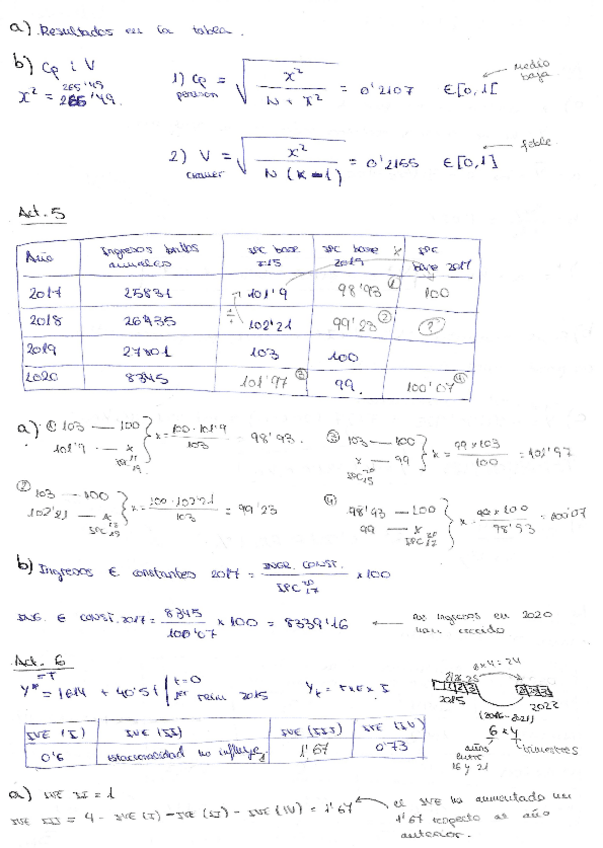 a) Resultados en la tabla.
b) Cp i V
x² = 265'49.
265'49
1) Cp = √(x² / N + x²) = 0'2107 ∈ [0,1[ ← medio baja
pearson
2) V = √(x² / N (K-1)) = 0'2155 ∈ [0,1] ← feble
cramer
Act. 5
Año | Ingresos brutos anuales | IPC base 15 | IPC base 2019 | IPC base 2017
2017 | 25831 | 101'9 | 98'93 ① | 100
2018 | 26435 | 102'21 | 99'23 ② | ?
2019 | 27801 | 103 | 100
2020 | 8345 | 101'97 ③ | 99 | 100'07 ④
a) ① 103 — 100
101'9 — x } x = 100·101'9 / 103 = 98'93.
③ 103 — 100
x — 99 } x = 99×103 / 100 = 101'97
② 103 — 100
102'21 — x } x = 100·102'21 / 103 = 99'23
④ 98'93 — 100
99 — x } x = 99×100 / 98'93 = 100'07
b) Ingresos € constantes 2017 = INGR. CONST. / IPC 20 17 × 100
ING. € CONST. 2017 = 8345 / 100'07 × 100 = 8339'16 ← los ingresos en 2020
han crecido
Act. 6
=T
Y* = 1614 + 40'51 | t=0
1er trim 2015
2015
2022
(2016-2021)
6 × 4
trimestres
años entre
16 y 21
6×4 = 24
IVE (I) | IVE (II) | IVE (III) | IVE (IV)
0'6 | estacionalidad no influye | 1'67 | 0'73
a) IVE II = 1
IVE III = 4 - IVE (I) - IVE (II) - IVE (IV) = 1'67 ← el IVE ha aumentado un
1'67 respecto al año
anterior.